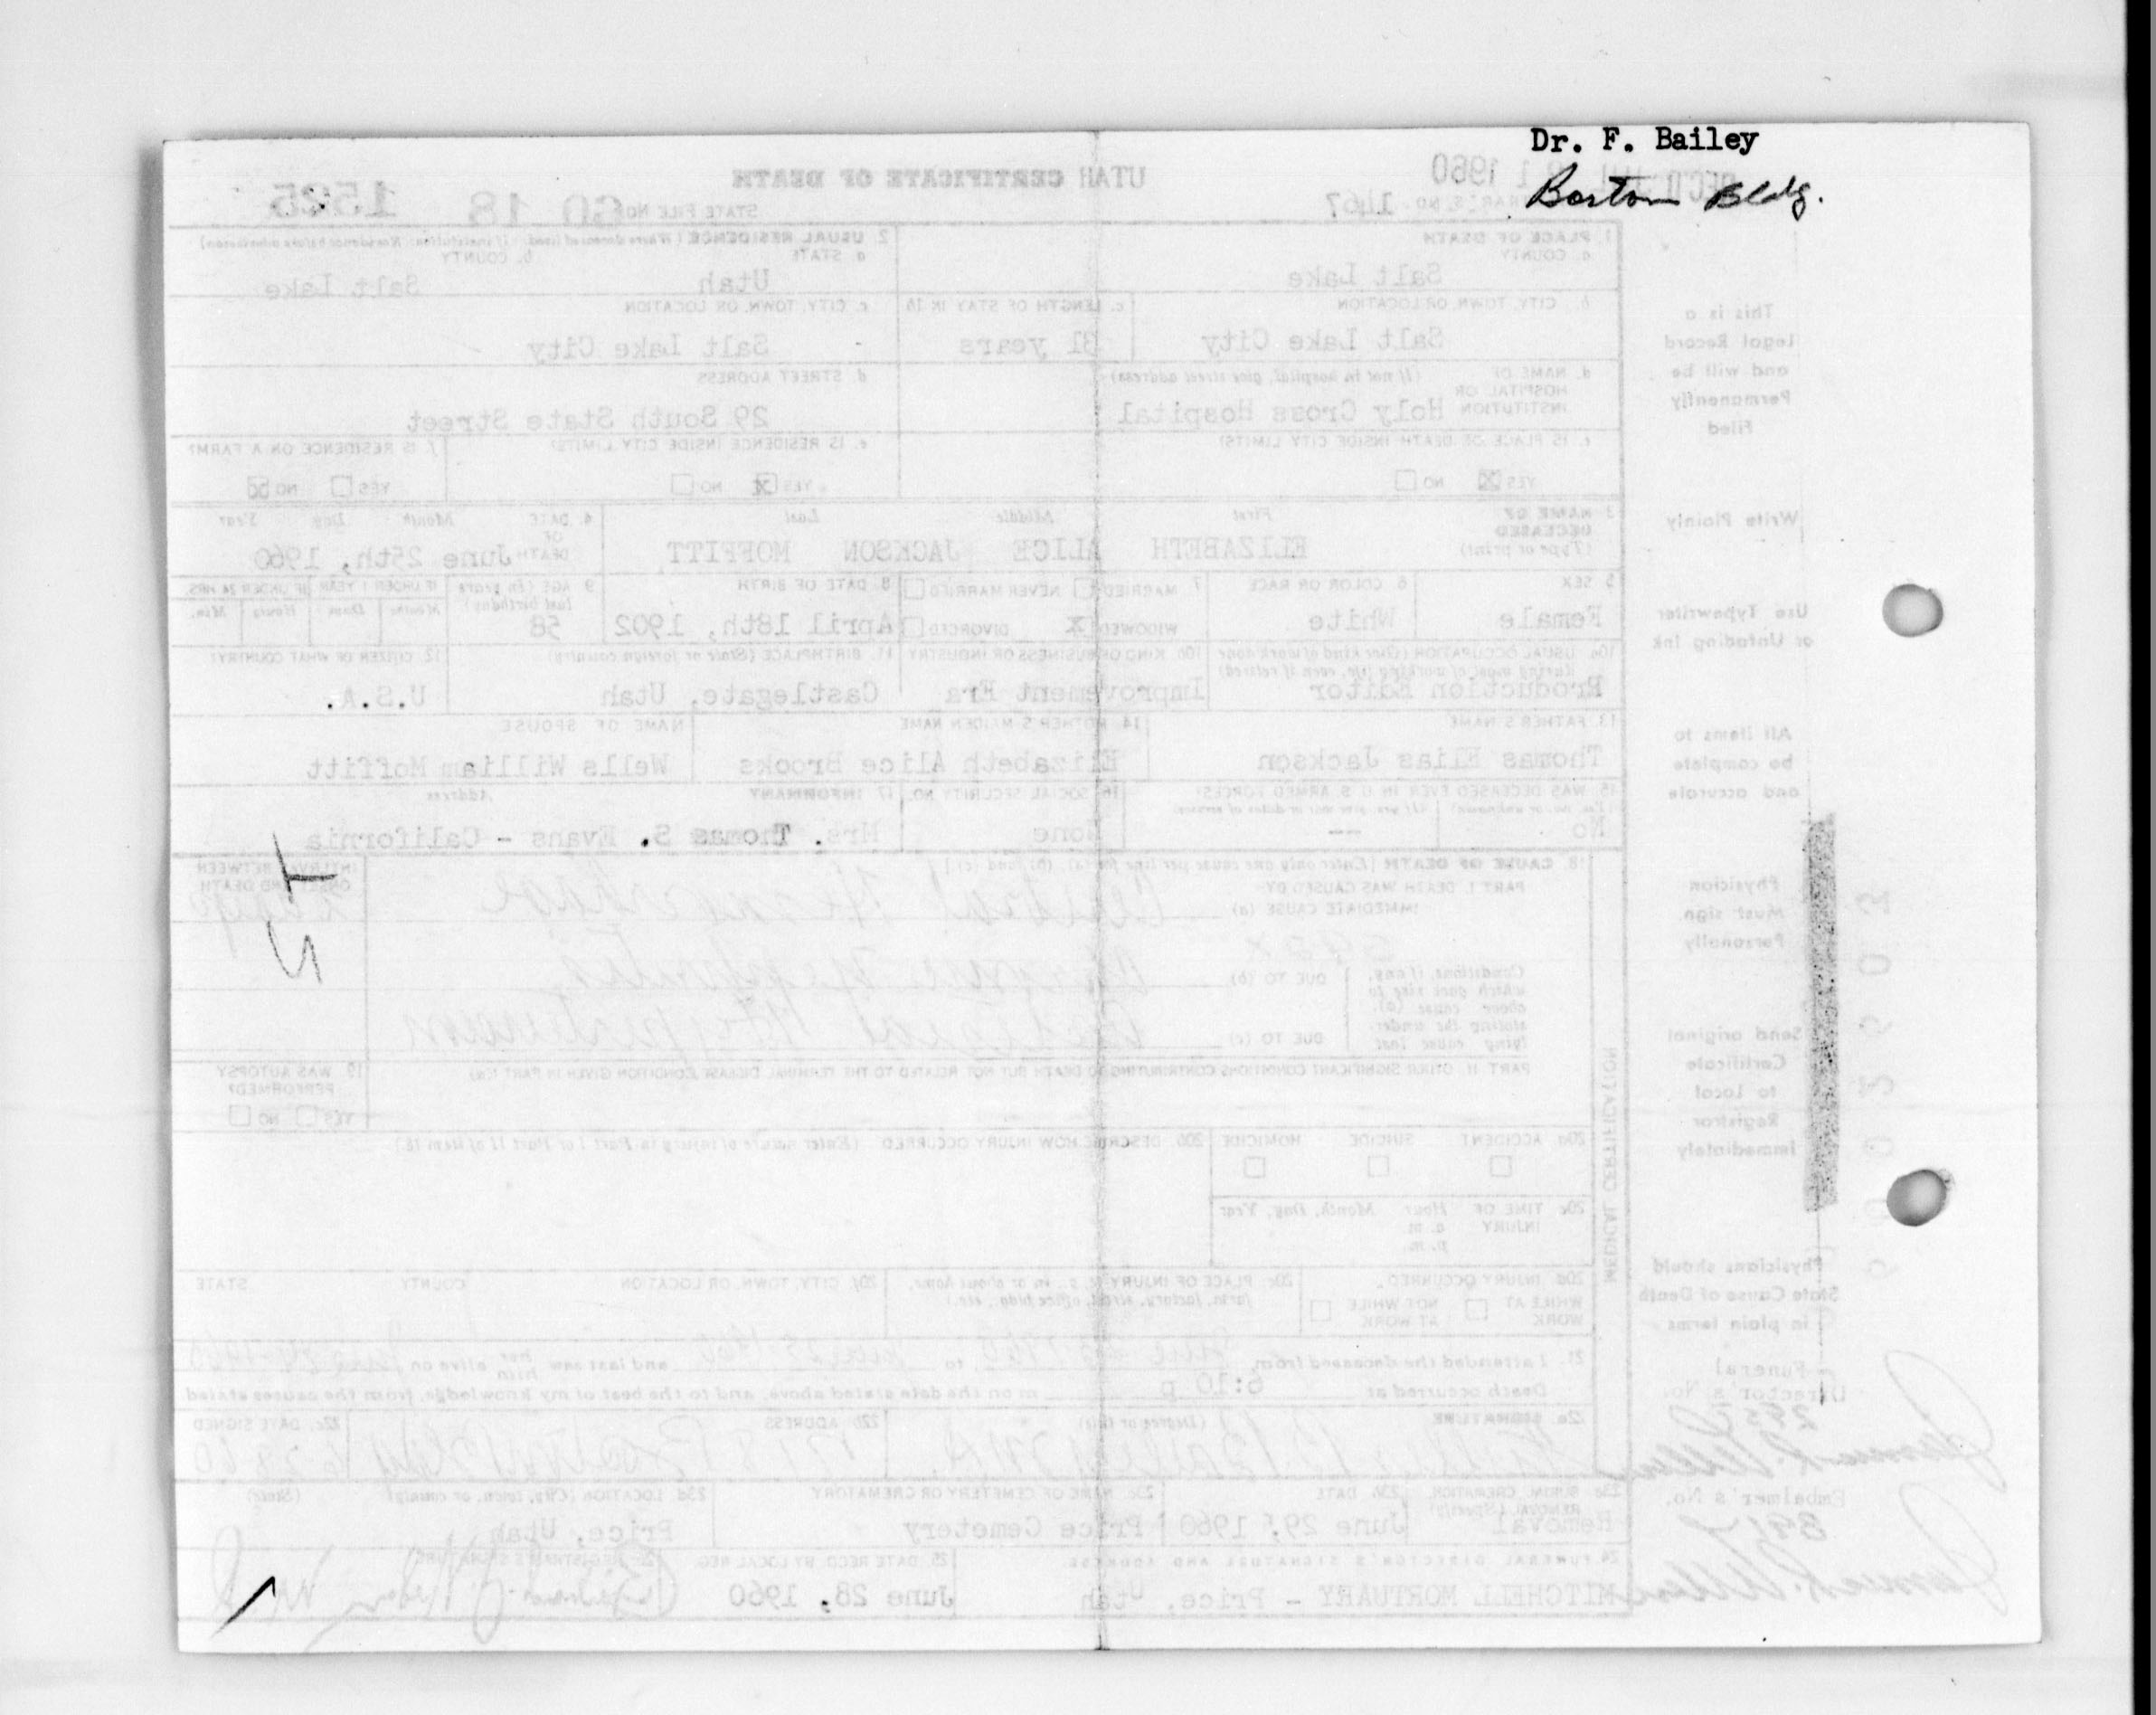 Dr. F. Bailey
Boston Bldg.
UTAH CERTIFICATE OF DEATH
REC'D JUL 1 1960
STATE FILE No. 60 18 1525
REGISTRAR'S NO. 1467
1. PLACE OF DEATH
a. COUNTY
Salt Lake
2. USUAL RESIDENCE (Where deceased lived. If institution: Residence before admission)
a. STATE
Utah
b. COUNTY
Salt Lake
b. CITY, TOWN, OR LOCATION
Salt Lake City
c. LENGTH OF STAY IN 1b
31 years
c. CITY, TOWN, OR LOCATION
Salt Lake City
d. NAME OF HOSPITAL OR INSTITUTION (If not in hospital, give street address)
Holy Cross Hospital
d. STREET ADDRESS
29 South State Street
e. IS PLACE OF DEATH INSIDE CITY LIMITS?
YES X NO
e. IS RESIDENCE INSIDE CITY LIMITS?
YES X NO
f. IS RESIDENCE ON A FARM?
YES NO X
3. NAME OF DECEASED (Type or print)
First Middle Last
ELIZABETH ALICE JACKSON MOFFITT
4. DATE OF DEATH Month Day Year
June 25th, 1960
5. SEX
Female
6. COLOR OR RACE
White
7. MARRIED NEVER MARRIED
WIDOWED X DIVORCED
8. DATE OF BIRTH
April 18th, 1902
9. AGE (In years last birthday)
58
IF UNDER 1 YEAR IF UNDER 24 HRS.
Months Days Hours Min.
10a. USUAL OCCUPATION (Give kind of work done during most of working life, even if retired)
Production Editor
10b. KIND OF BUSINESS OR INDUSTRY
Improvement Era
11. BIRTHPLACE (State or foreign country)
Castlegate, Utah
12. CITIZEN OF WHAT COUNTRY?
U.S.A.
13. FATHER'S NAME
Thomas Elias Jackson
14. MOTHER'S MAIDEN NAME
Elizabeth Alice Brooks
NAME OF SPOUSE
Wells William Moffitt
15. WAS DECEASED EVER IN U. S. ARMED FORCES?
(Yes, no, or unknown) (If yes, give war or dates of service)
No --
16. SOCIAL SECURITY NO.
None
17. INFORMANT Address
Mrs. Thomas S. Evans - California
18. CAUSE OF DEATH [Enter only one cause per line for (a), (b), and (c).]
INTERVAL BETWEEN ONSET AND DEATH
PART I. DEATH WAS CAUSED BY:
IMMEDIATE CAUSE (a)
Cerebral Hemorrhage
Conditions, if any, which gave rise to above cause (a), stating the under-lying cause last.
DUE TO (b)
Chronic Nephritis
DUE TO (c)
Hypertension
PART II. OTHER SIGNIFICANT CONDITIONS CONTRIBUTING TO DEATH BUT NOT RELATED TO THE TERMINAL DISEASE CONDITION GIVEN IN PART I(a)
19. WAS AUTOPSY PERFORMED?
YES NO
MEDICAL CERTIFICATION
20a. ACCIDENT SUICIDE HOMICIDE
20b. DESCRIBE HOW INJURY OCCURRED. (Enter nature of injury in Part I or Part II of item 18.)
20c. TIME OF INJURY Hour Month, Day, Year
a. m.
p. m.
20d. INJURY OCCURRED
WHILE AT WORK NOT WHILE AT WORK
20e. PLACE OF INJURY (e. g., in or about home, farm, factory, street, office bldg., etc.)
20f. CITY, TOWN, OR LOCATION COUNTY STATE
21. I attended the deceased from, to and last saw her him alive on
Death occurred at 6:10 p m on the date stated above, and to the best of my knowledge, from the causes stated.
22a. SIGNATURE (Degree or title)
Bailey M.D.
22b. ADDRESS
Boston Bldg
22c. DATE SIGNED
6-28-60
23a. BURIAL, CREMATION, REMOVAL (Specify)
Removal
23b. DATE
June 29, 1960
23c. NAME OF CEMETERY OR CREMATORY
Price Cemetery
23d. LOCATION (City, town, or county) (State)
Price, Utah
24. FUNERAL DIRECTOR'S SIGNATURE AND ADDRESS
MITCHELL MORTUARY - Price, Utah
25. DATE RECD. BY LOCAL REG.
June 28, 1960
26. REGISTRAR'S SIGNATURE
This is a Legal Record and will be Permanently Filed
Write Plainly
Use Typewriter or Unfading Ink
All items to be complete and accurate
Physician Must sign Personally
Send original Certificate to Local Registrar Immediately
Physicians should State Cause of Death in plain terms
Funeral Director's No.
Embalmer's No.